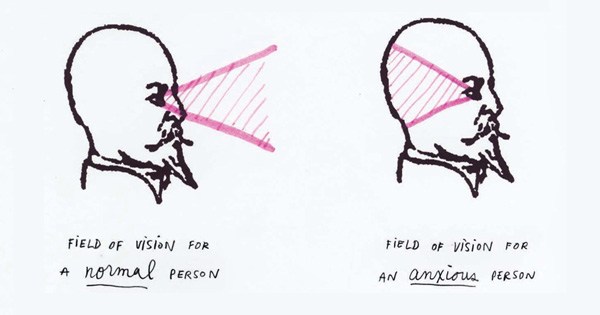 FIELD OF VISION FOR
A normal PERSON
FIELD OF VISION FOR
AN anxious PERSON